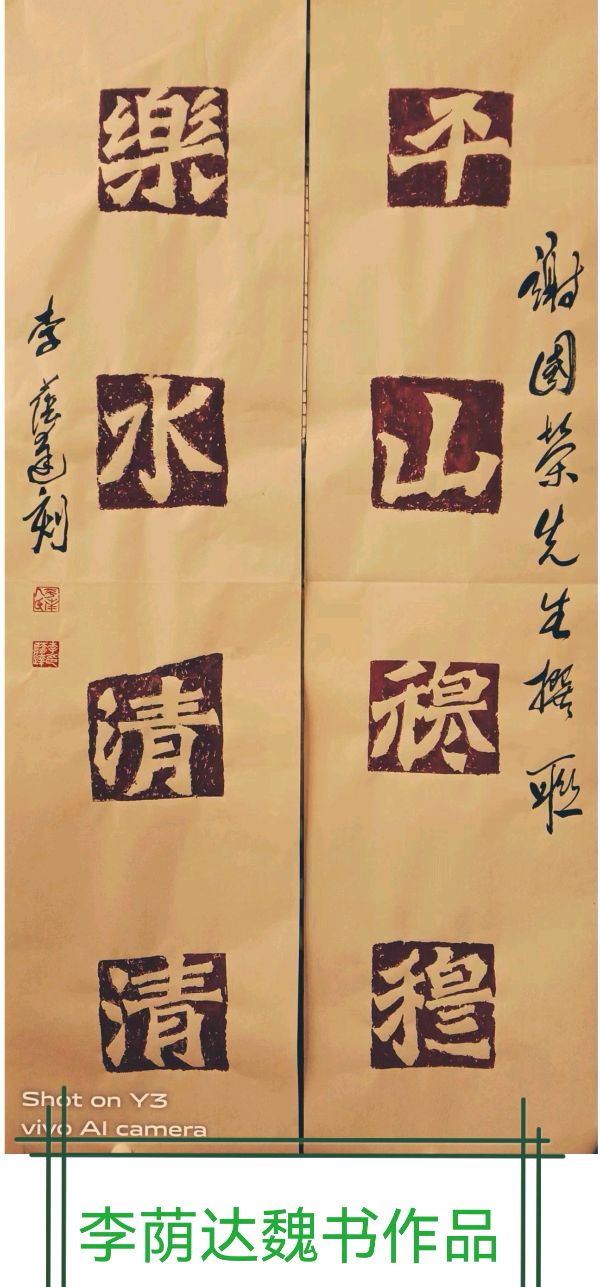 謝國榮先生撰聯
平山穆穆
樂水清清
李蔭達刻
Shot on Y3
vivo AI camera
李荫达魏书作品